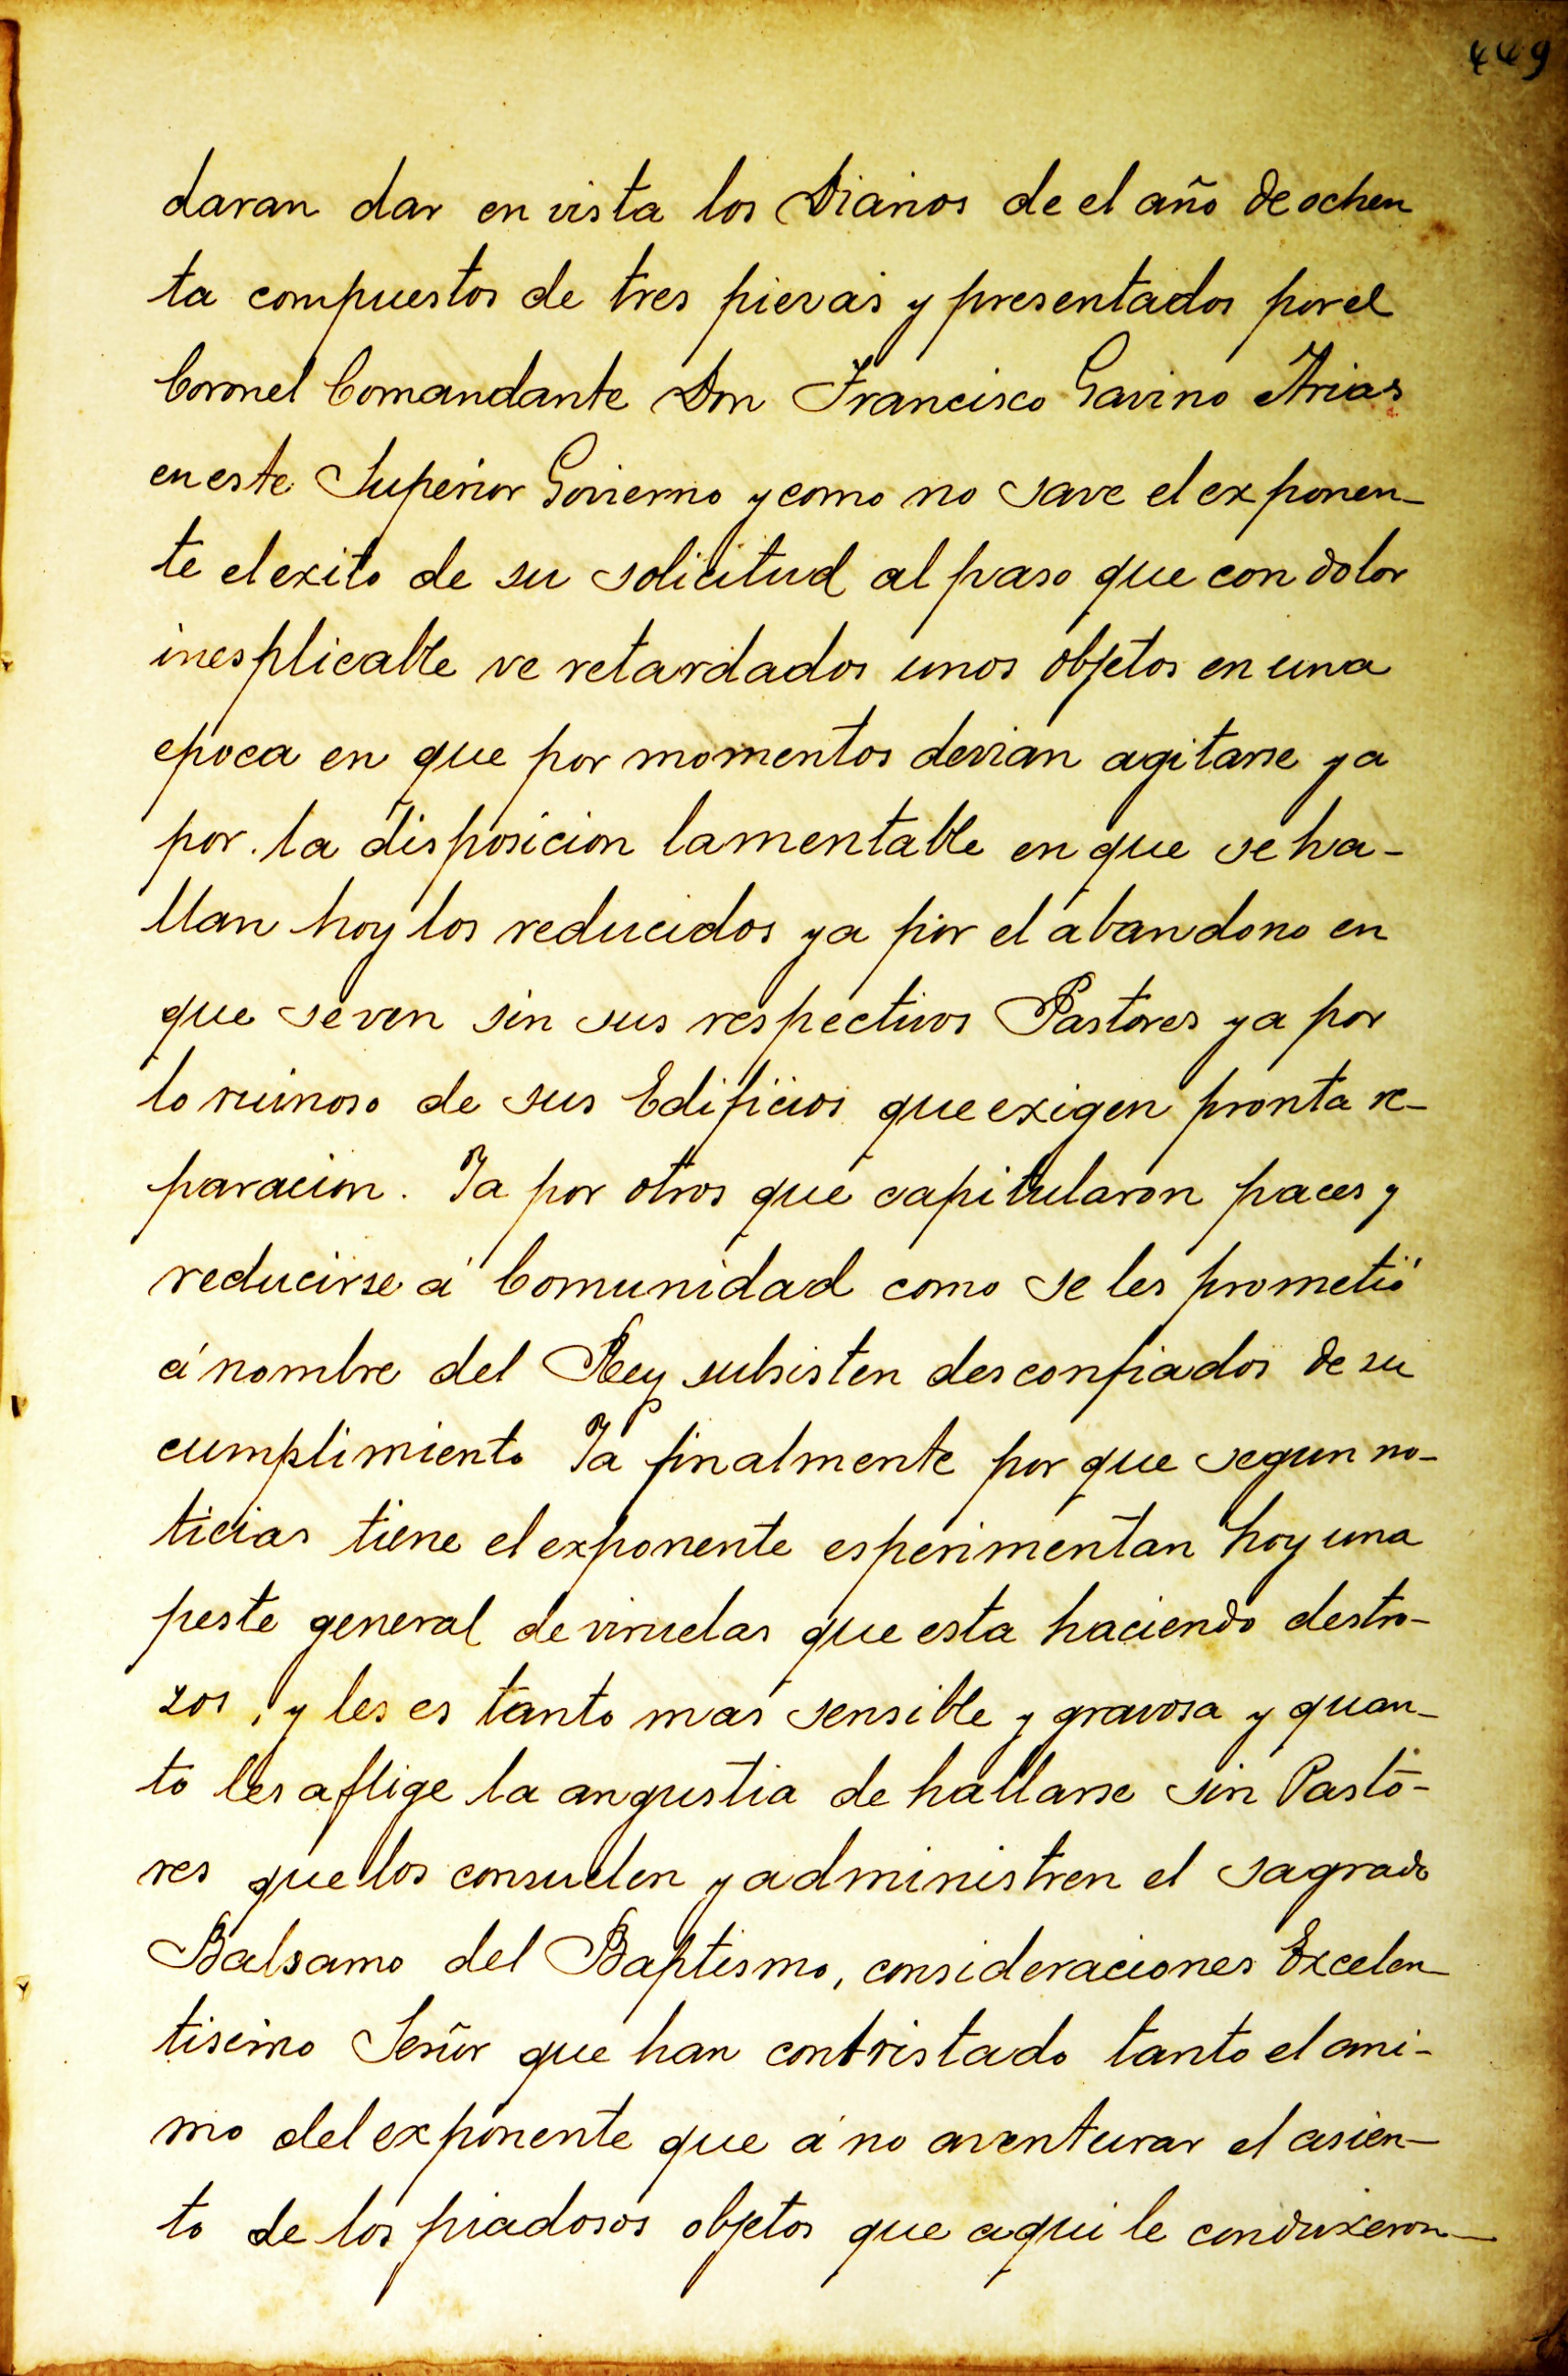 449
daran dar en vista los Diarios de el año de ochen
ta compuestos de tres piezas y presentados por el
Coronel Comandante Don Francisco Gavino Arias
en este Superior Govierno y como no save el exponen-
te el exito de su solicitud al paso que con dolor
inesplicable ve retardados unos objetos en una
epoca en que por momentos devian agitarse ya
por la disposicion lamentable en que se ha-
llan hoy los reducidos ya por el abandono en
que se ven sin sus respectivos Pastores ya por
lo ruinoso de sus Edificios que exigen pronta re-
paracion. Ya por otros que capitularon paces y
reducirse á Comunidad como se les prometió
á nombre del Rey subsisten desconfiados de su
cumplimiento Ya finalmente por que segun no-
ticias tiene el exponente esperimentan hoy una
peste general de viruelas que esta haciendo destro-
zos, y les es tanto mas sensible y gravosa y quan-
to les aflige la angustia de hallarse sin Pasto-
res que los consuelen y administren el sagrado
Balsamo del Baptismo, consideraciones Excelen-
tisimo Señor que han contristado tanto el ani-
mo del exponente que á no aventurar el asien-
to de los piadosos objetos que aqui le conduxeron-